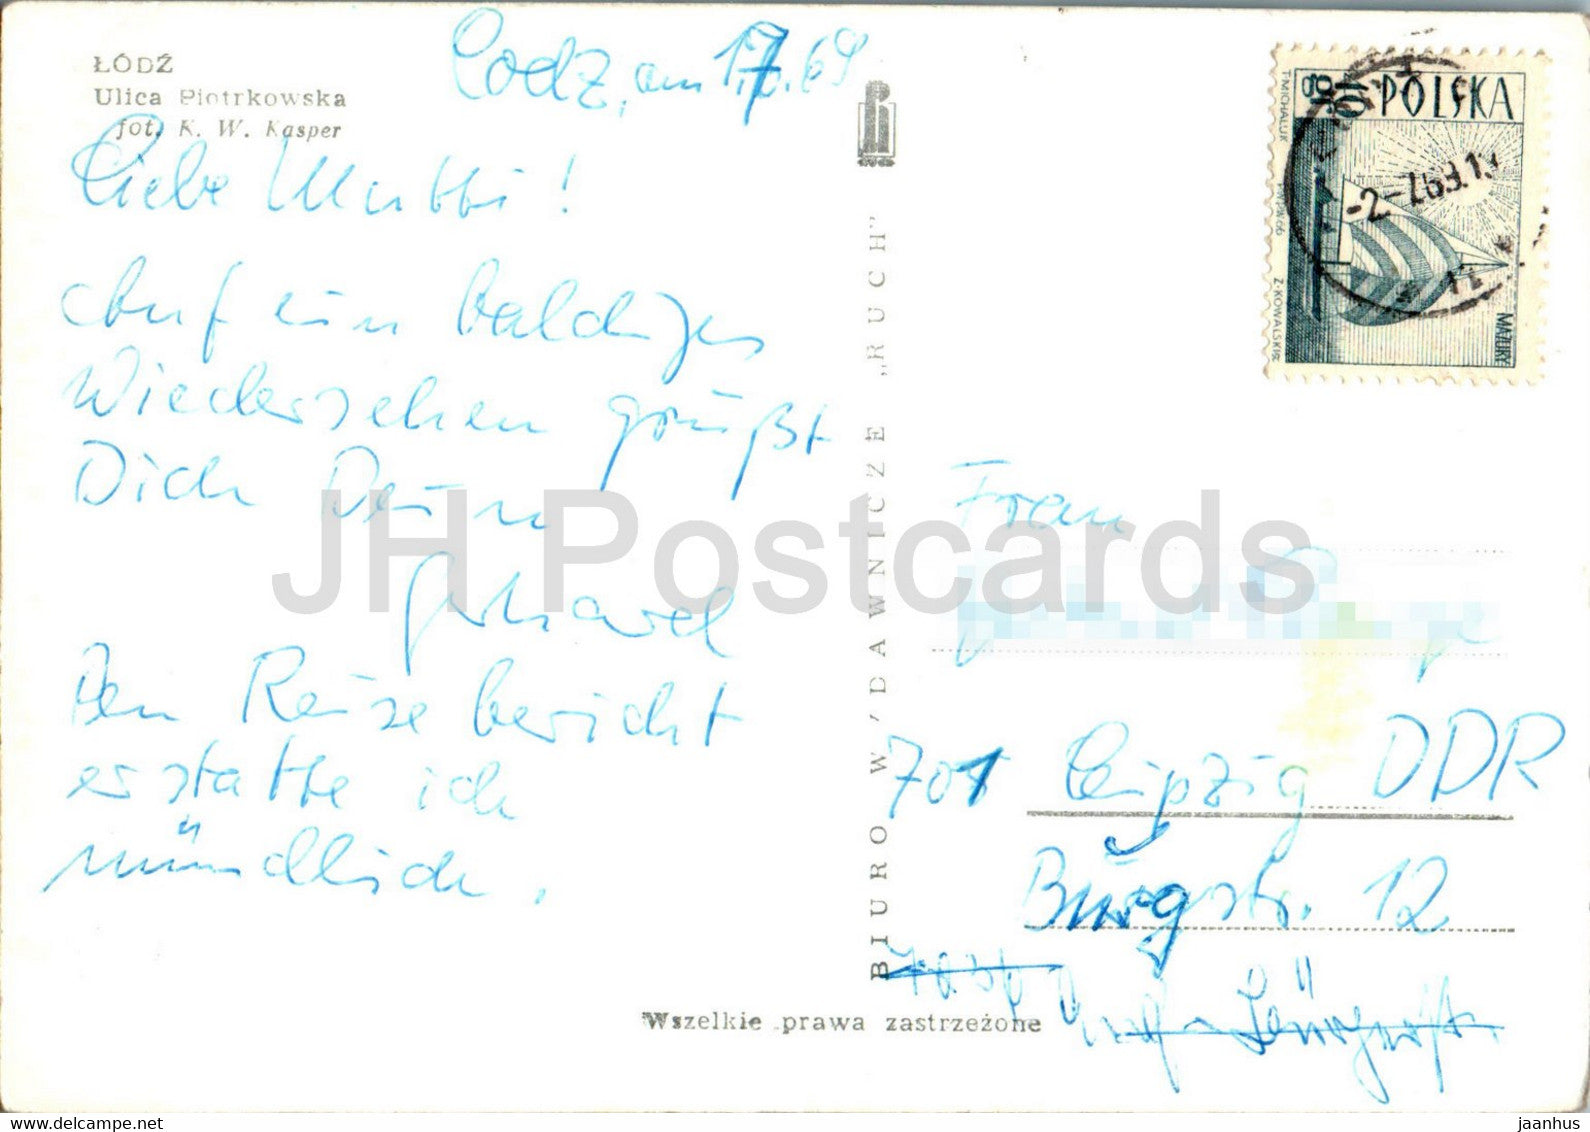 ŁÓDŹ
Ulica Piotrkowska
fot. K. W. Kasper
Lodz, am 1.7.69
Liebe Mutti!
Auf ein baldiges
Wiedersehen grüßt
Dich Dein
Gerhard
Den Reisebericht
erstatte ich
mündlich.
BIURO WYDAWNICZE „RUCH”
Wszelkie prawa zastrzeżone
POLSKA
T.MICHALUK
Z.KOWALSKI
MAZURY
-2.-7.69.19
Frau
701 Leipzig DDR
Burgstr. 12
JH Postcards
www.delcampe.net
jaanhus